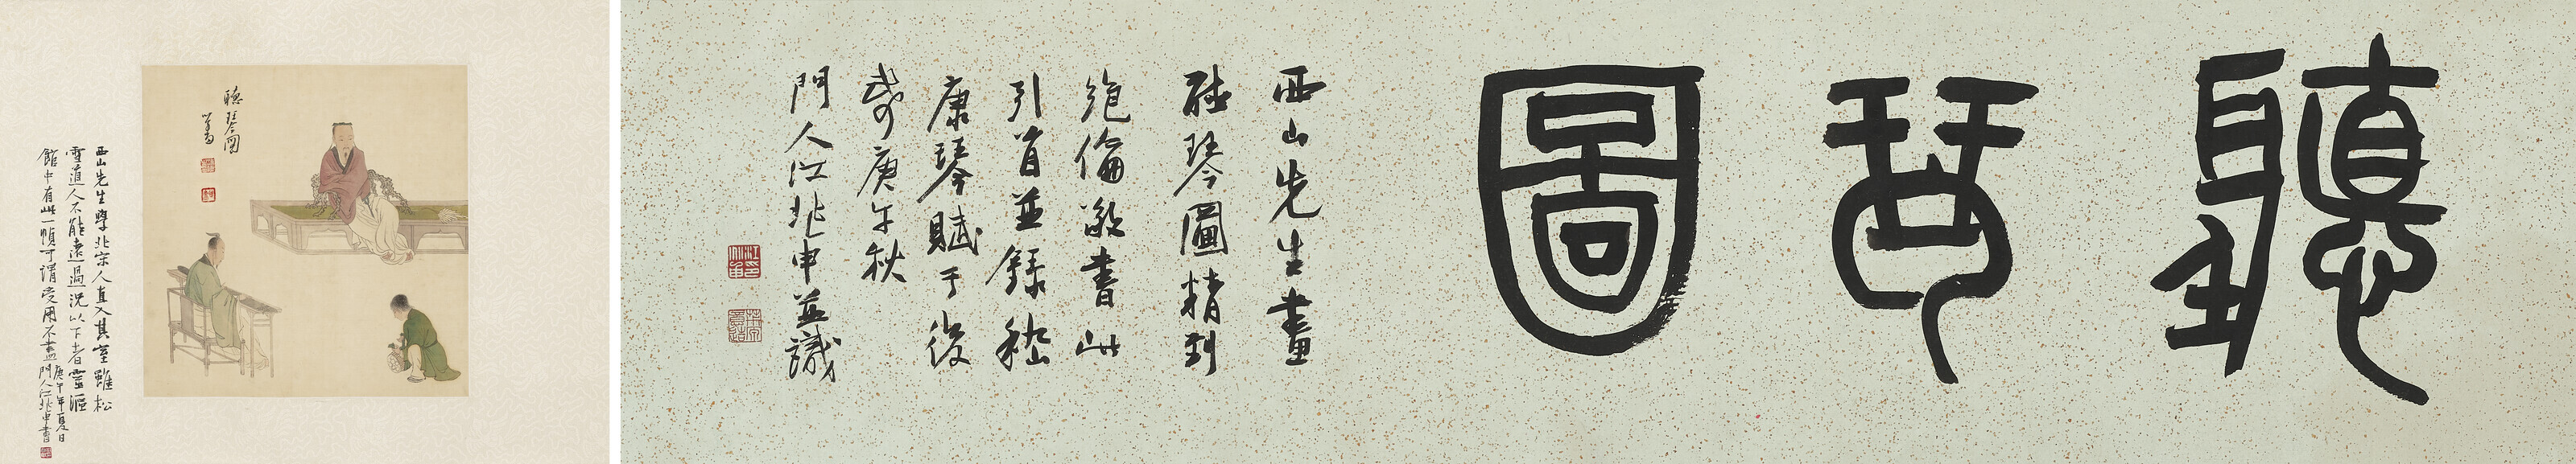 聽琴圖
西山先生畫
聽琴圖精到
絕倫敬書此
引首並錄嵇
康琴賦于後
歲庚午秋
門人江兆申並識
聽琴圖
溥儒
西山先生學北宋人直入其室雖松
雪道人不能遠過況以下者靈漚
館中有此一幀可謂受用不盡
庚午年夏日
門人江兆申書